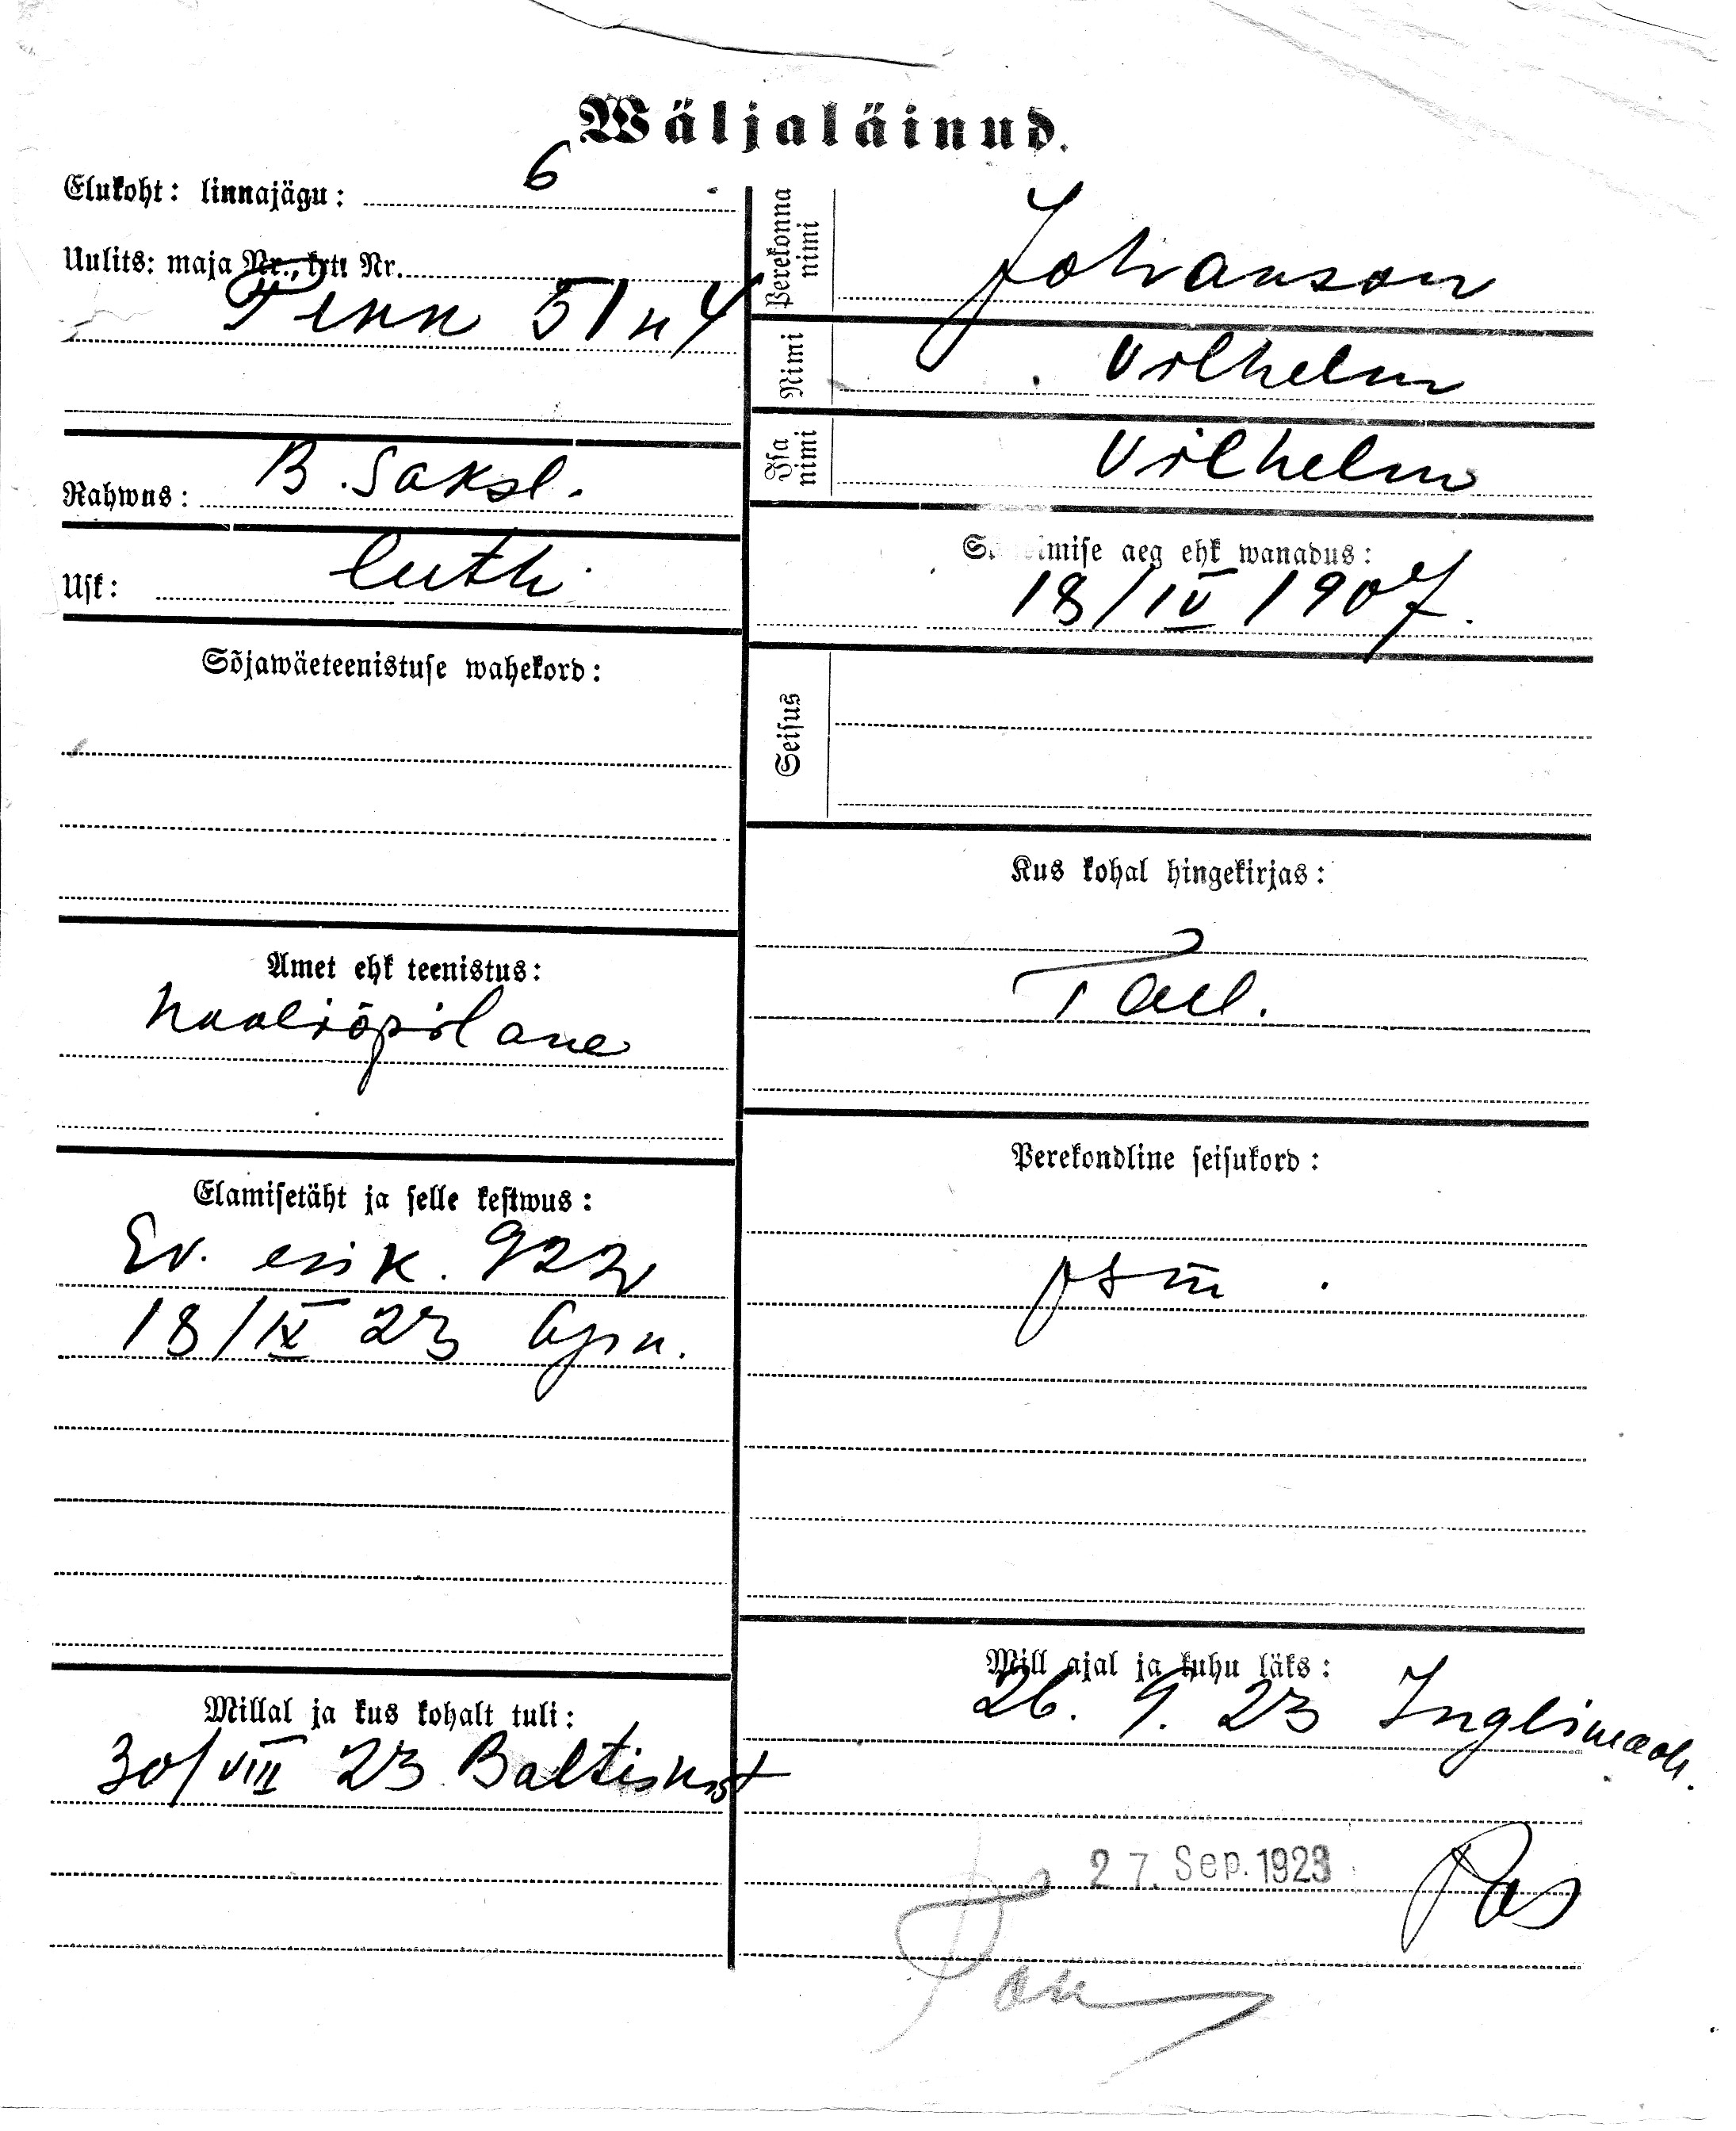 Wäljaläinud.
Elukoht: linnajägu: 6
Uulits: maja Nr., krt. Nr.
51 n 4
Rahwus: B. Saksl.
Usk: luth.
Sõjawäeteenistuse wahekord:
Amet ehk teenistus:
kooliõpilane
Elamisetäht ja selle kestwus:
Ev. esik. 922
18/IX 23
Millal ja kus kohalt tuli:
30/VIII 23 Baltiskist
Perekonna nimi
Johanson
Nimi
Vilhelm
Isa nimi
Vilhelm
aeg ehk wanadus:
18/IV 1907.
Seisus
Kus kohal hingekirjas:
Tall.
Perekondline seisukord:
Mill ajal ja kuhu läks:
26. 9. 23 Inglismaale.
27. Sep. 1923